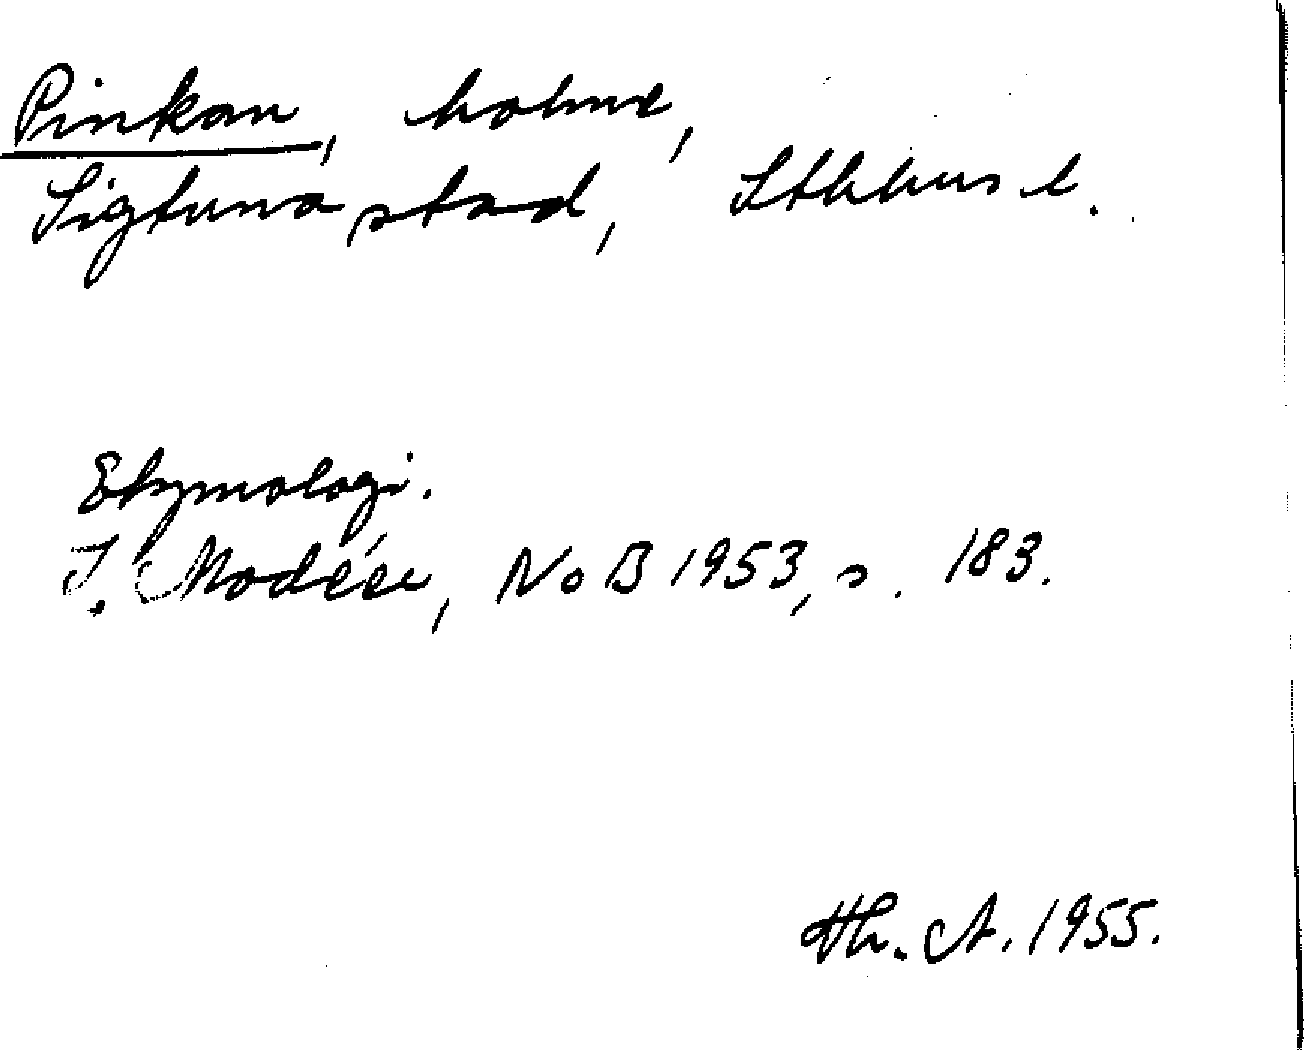 Pinkan, holme,
Sigtuna stad, Sthlms l.
Etymologi.
I. Modéer, NoB 1953, s. 183.
Th. A. 1955.